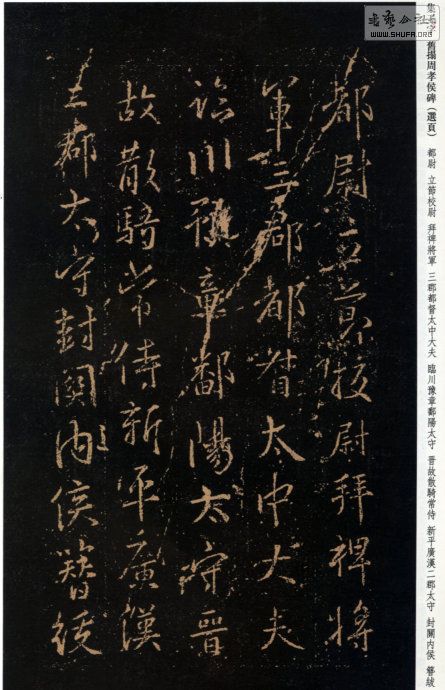 舊搨周孝侯碑（選頁） 都尉 立節校尉 拜裨將軍 三郡都督太中大夫 臨川豫章鄱陽太守 晋故散騎常侍 新平廣漢二郡太守 封關內侯 簪紱
WWW.SHUFA.ORG
都尉立節校尉拜裨將
軍三郡都督太中大夫
臨川豫章鄱陽太守晉
故散騎常侍新平廣漢
二郡太守封關內侯簪紱